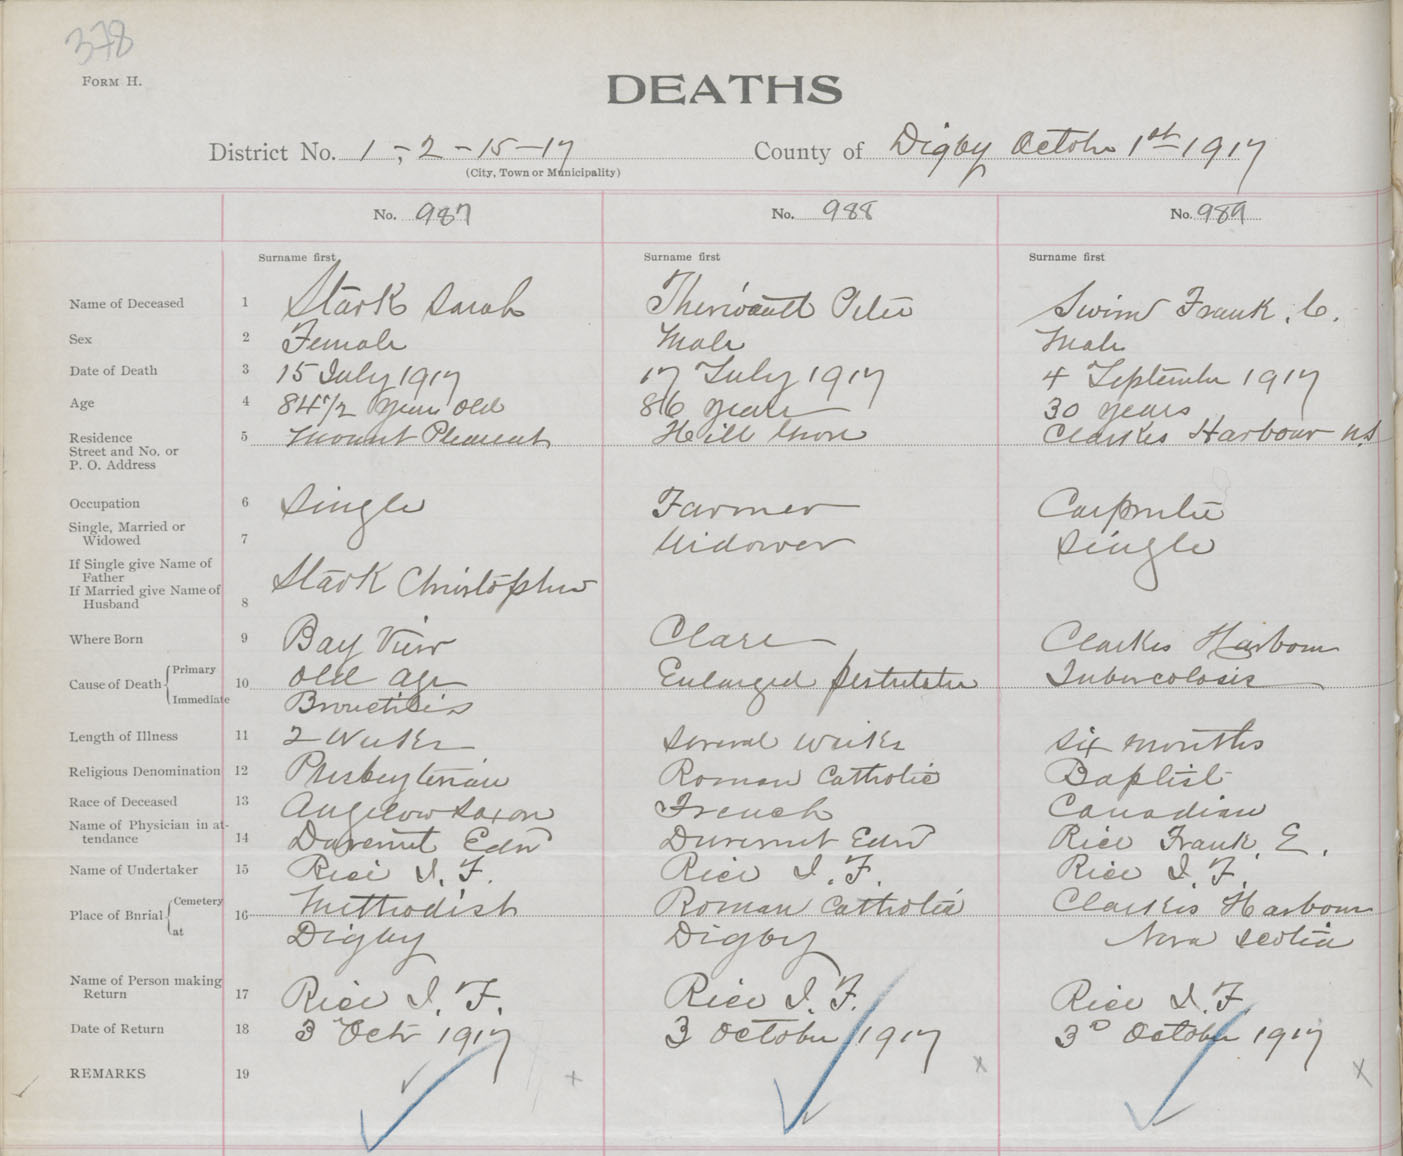 378
FORM H.
DEATHS
District No. 1-2-15-17 County of Digby October 1st 1917
(City, Town or Municipality)
No. 987 No. 988 No. 989
Surname first Surname first Surname first
Name of Deceased 1 Stark Sarah Theriault Peter Swim Frank. C.
Sex 2 Female Male Male
Date of Death 3 15 July 1917 17 July 1917 4 September 1917
Age 4 84 1/2 years old 86 years 30 years
Residence 5 Mount Pleasant Hill Grove Clarkes Harbour N.S
Street and No. or
P. O. Address
Occupation 6 Single Farmer Carpenter
Single, Married or
Widowed 7 Widower Single
If Single give Name of
Father
If Married give Name of Stark Christopher
Husband 8
Where Born 9 Bay View Clare Clarkes Harbour
Cause of Death Primary 10 old age Enlarged Tubercolosis
Immediate Bronchitis
Length of Illness 11 2 Weeks several weeks six months
Religious Denomination 12 Presbyterian Roman Catholic Baptist
Race of Deceased 13 Anglow Saxon French Canadian
Name of Physician in at-
tendance 14 Edw Edw Rice Frank. E.
Name of Undertaker 15 Rice I. F. Rice I. F. Rice I. F.
Place of Bnrial Cemetery 16 Methodist Roman Catholic Clarkes Harbour
at Digby Digby Nova Scotia
Name of Person making
Return 17 Rice I. F. Rice I. F. Rice I. F.
Date of Return 18 3 Octr 1917 3 October 1917 3D October 1917
REMARKS 19 x x x